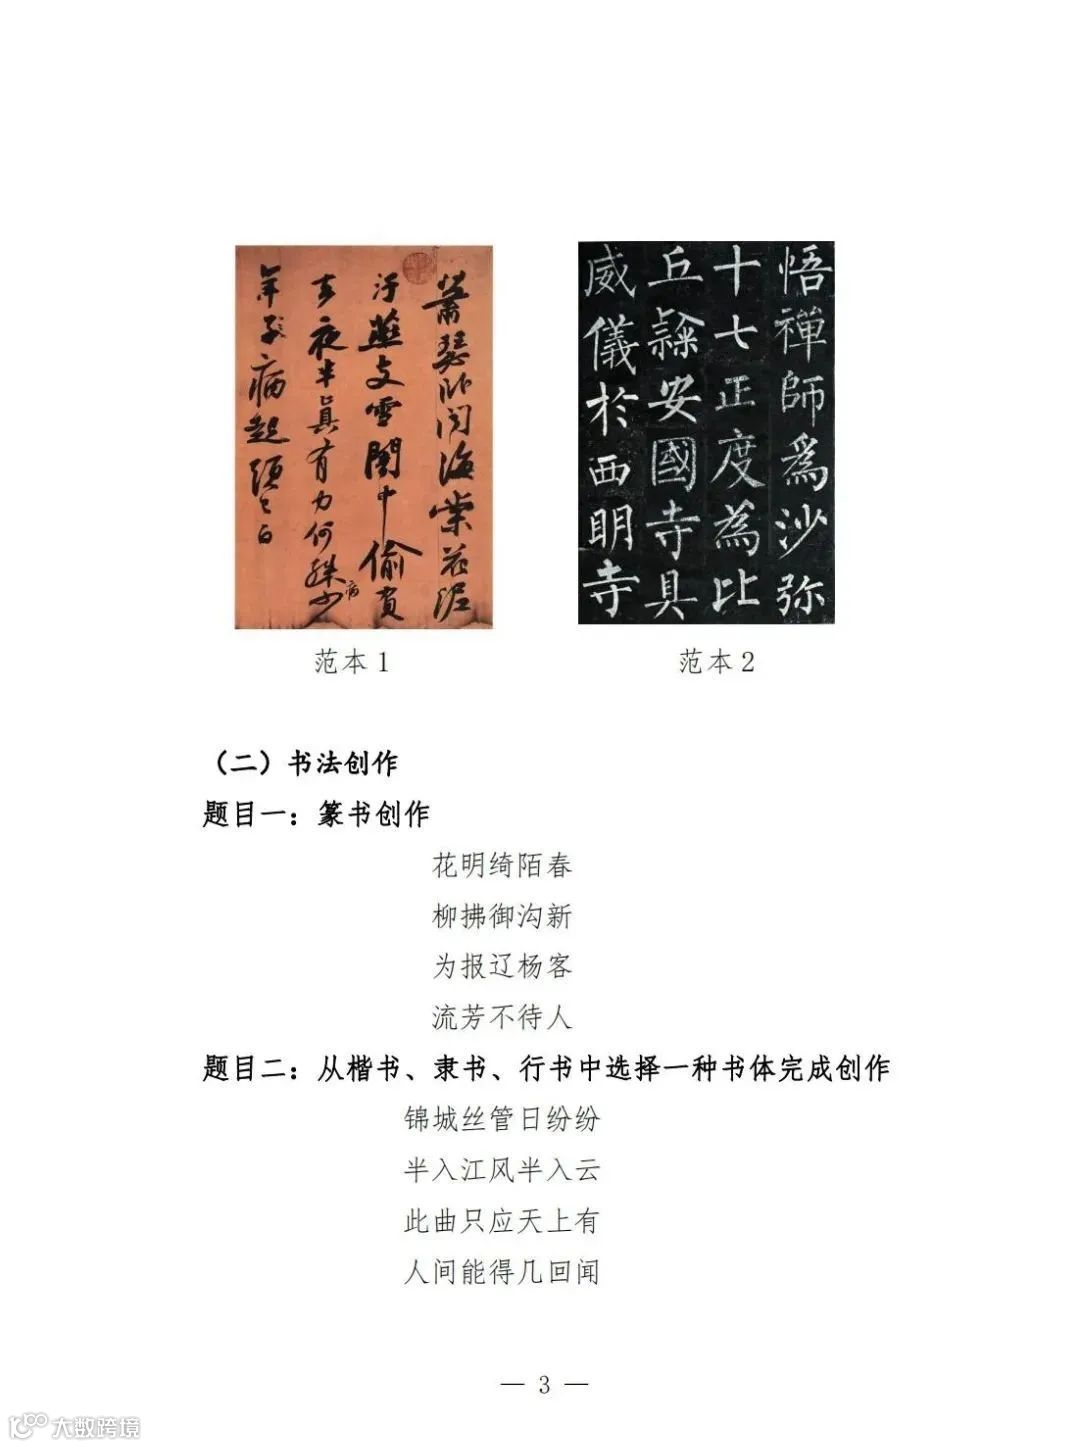 蕭瑟卧聞海棠花泥
汙燕支雪闇中偷負
去夜半真有力何殊少
年子病起頭已白
病
悟禪師為沙弥
十七正度為比
丘隸安國寺具
威儀於西明寺
范本1
范本2
（二）书法创作
题目一：篆书创作
花明绮陌春
柳拂御沟新
为报辽杨客
流芳不待人
题目二：从楷书、隶书、行书中选择一种书体完成创作
锦城丝管日纷纷
半入江风半入云
此曲只应天上有
人间能得几回闻
— 3 —
大数跨境